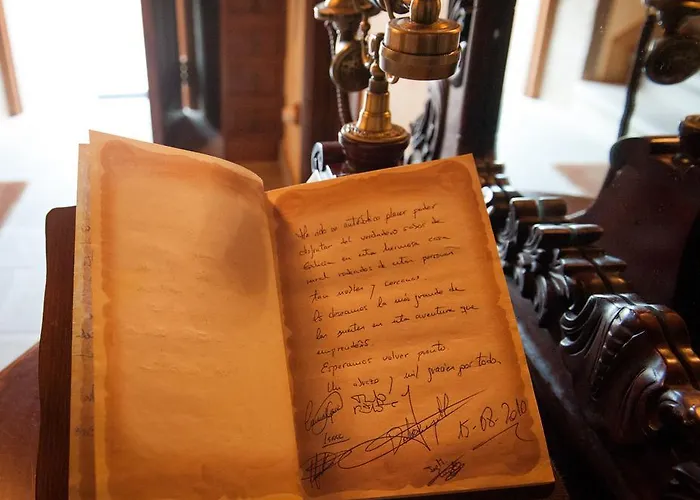 Ha sido un auténtico placer poder
disfrutar del verdadero sabor de
Galicia en esta hermosa casa
rural rodeados de estas personas
tan nobles y cercanas.
Os deseamos la más grande de
las suertes en esta aventura que
emprendéis.
Esperamos volver pronto.
Un abrazo y mil gracias por todo.
15-08-2010